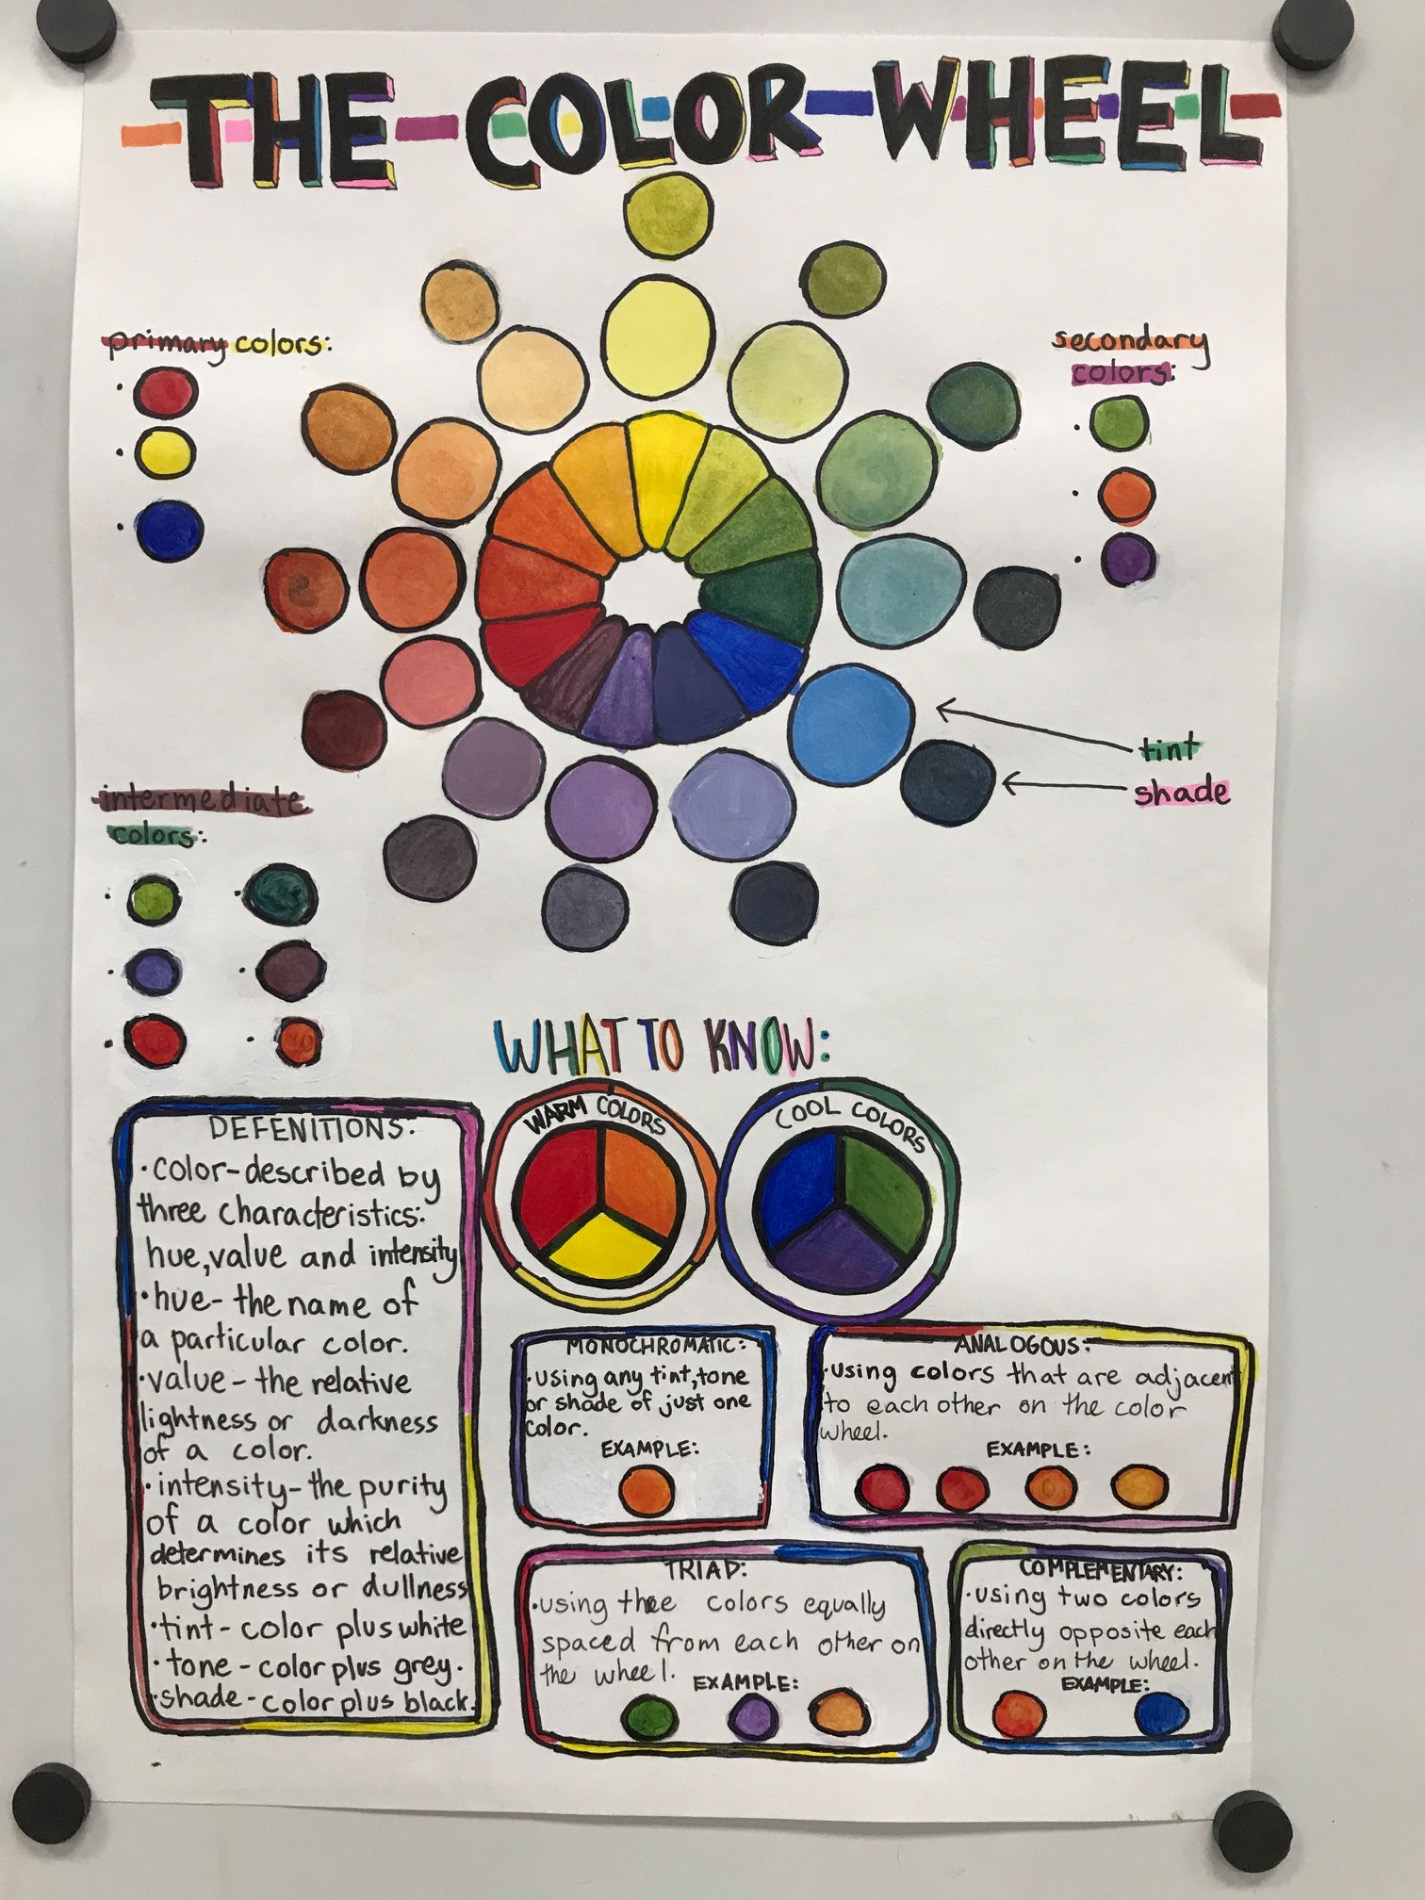 THE COLOR WHEEL
primary colors:
secondary
colors:
tint
shade
intermediate
colors:
WHAT TO KNOW:
DEFENITIONS:
·color-described by
three characteristics:
hue, value and intensity
·hue- the name of
a particular color.
·value - the relative
lightness or darkness
of a color.
·intensity-the purity
of a color which
determines its relative
brightness or dullness
·tint- color plus white
·tone - color plus grey.
·shade-color plus black.
WARM COLORS
COOL COLORS
MONOCHROMATIC:
·using any tint, tone
or shade of just one
color.
EXAMPLE:
ANALOGOUS:
·using colors that are adjacent
to each other on the color
wheel.
EXAMPLE:
TRIAD:
·using three colors equally
spaced from each other on
the wheel.
EXAMPLE:
COMPLEMENTARY:
·using two colors
directly opposite each
other on the wheel.
EXAMPLE: